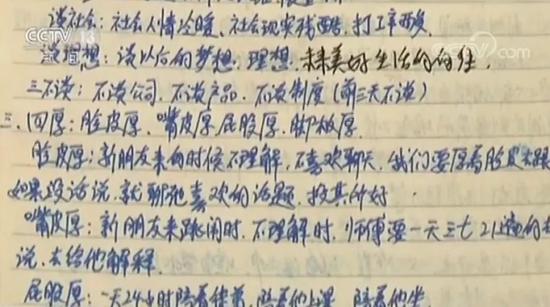 CCTV 13
新闻
央视网
cctv.com
谈社会：社会人情冷暖、社会现实残酷，打工辛酸
谈理想：谈以后的梦想、理想、未来美好生活的向往，
三不谈：不谈公司、不谈产品、不谈制度（前三天不谈）
三、四厚：脸皮厚、嘴皮厚、屁股厚、脚板厚．
脸皮厚：新朋友来的时候不理解，不喜欢聊天，我们要厚着脸皮去跟
如果没话说，就聊他喜欢的话题，投其所好
嘴皮厚：新朋友来跳闹时、不理解时，师傅要一天三七21遍的去
说，去给他解释．
屁股厚：一天24小时陪着